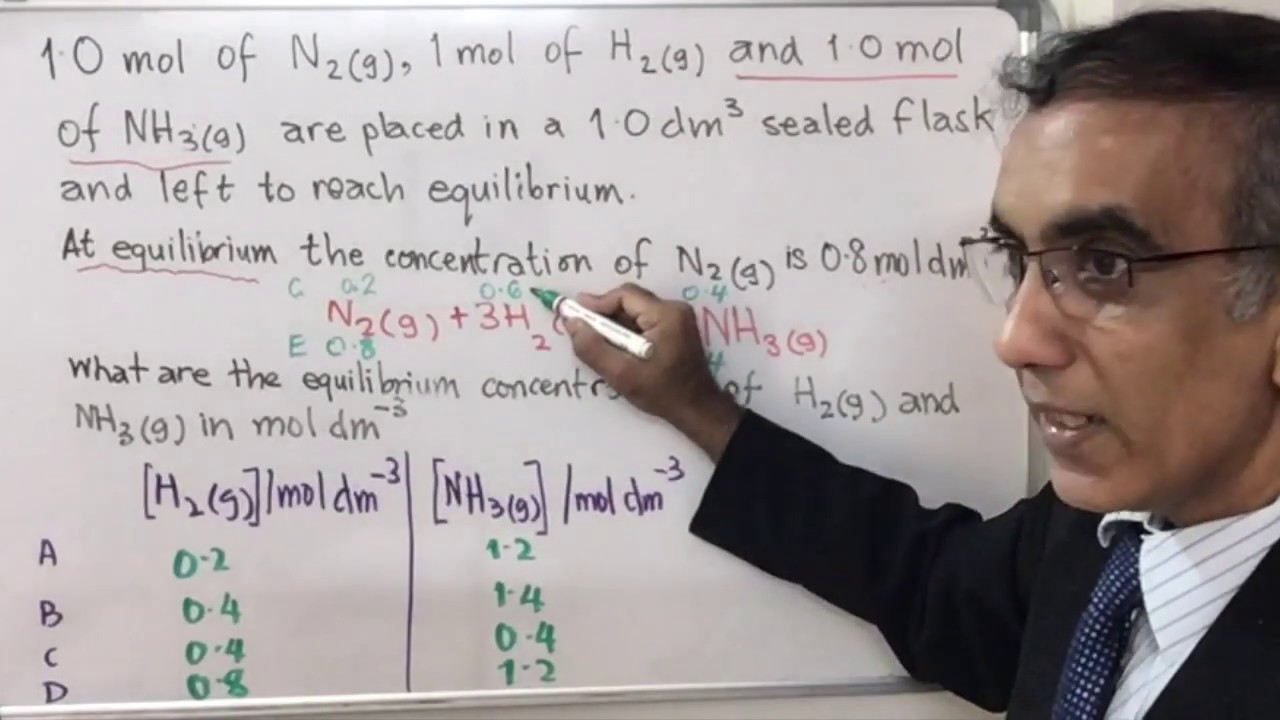 1.0 mol of N₂(g), 1 mol of H₂(g) and 1.0 mol
of NH₃(g) are placed in a 1.0 dm³ sealed flask
and left to reach equilibrium.
At equilibrium the concentration of N₂(g) is 0.8 mol dm
C 0.2 0.6 0.4
N₂(g) + 3H₂ NH₃(g)
E 0.8 4
What are the equilibrium of H₂(g) and
NH₃(g) in mol dm⁻³
[H₂(g)]/mol dm⁻³ [NH₃(g)]/mol dm⁻³
A 0.2 1.2
B 0.4 1.4
C 0.4 0.4
D 0.8 1.2